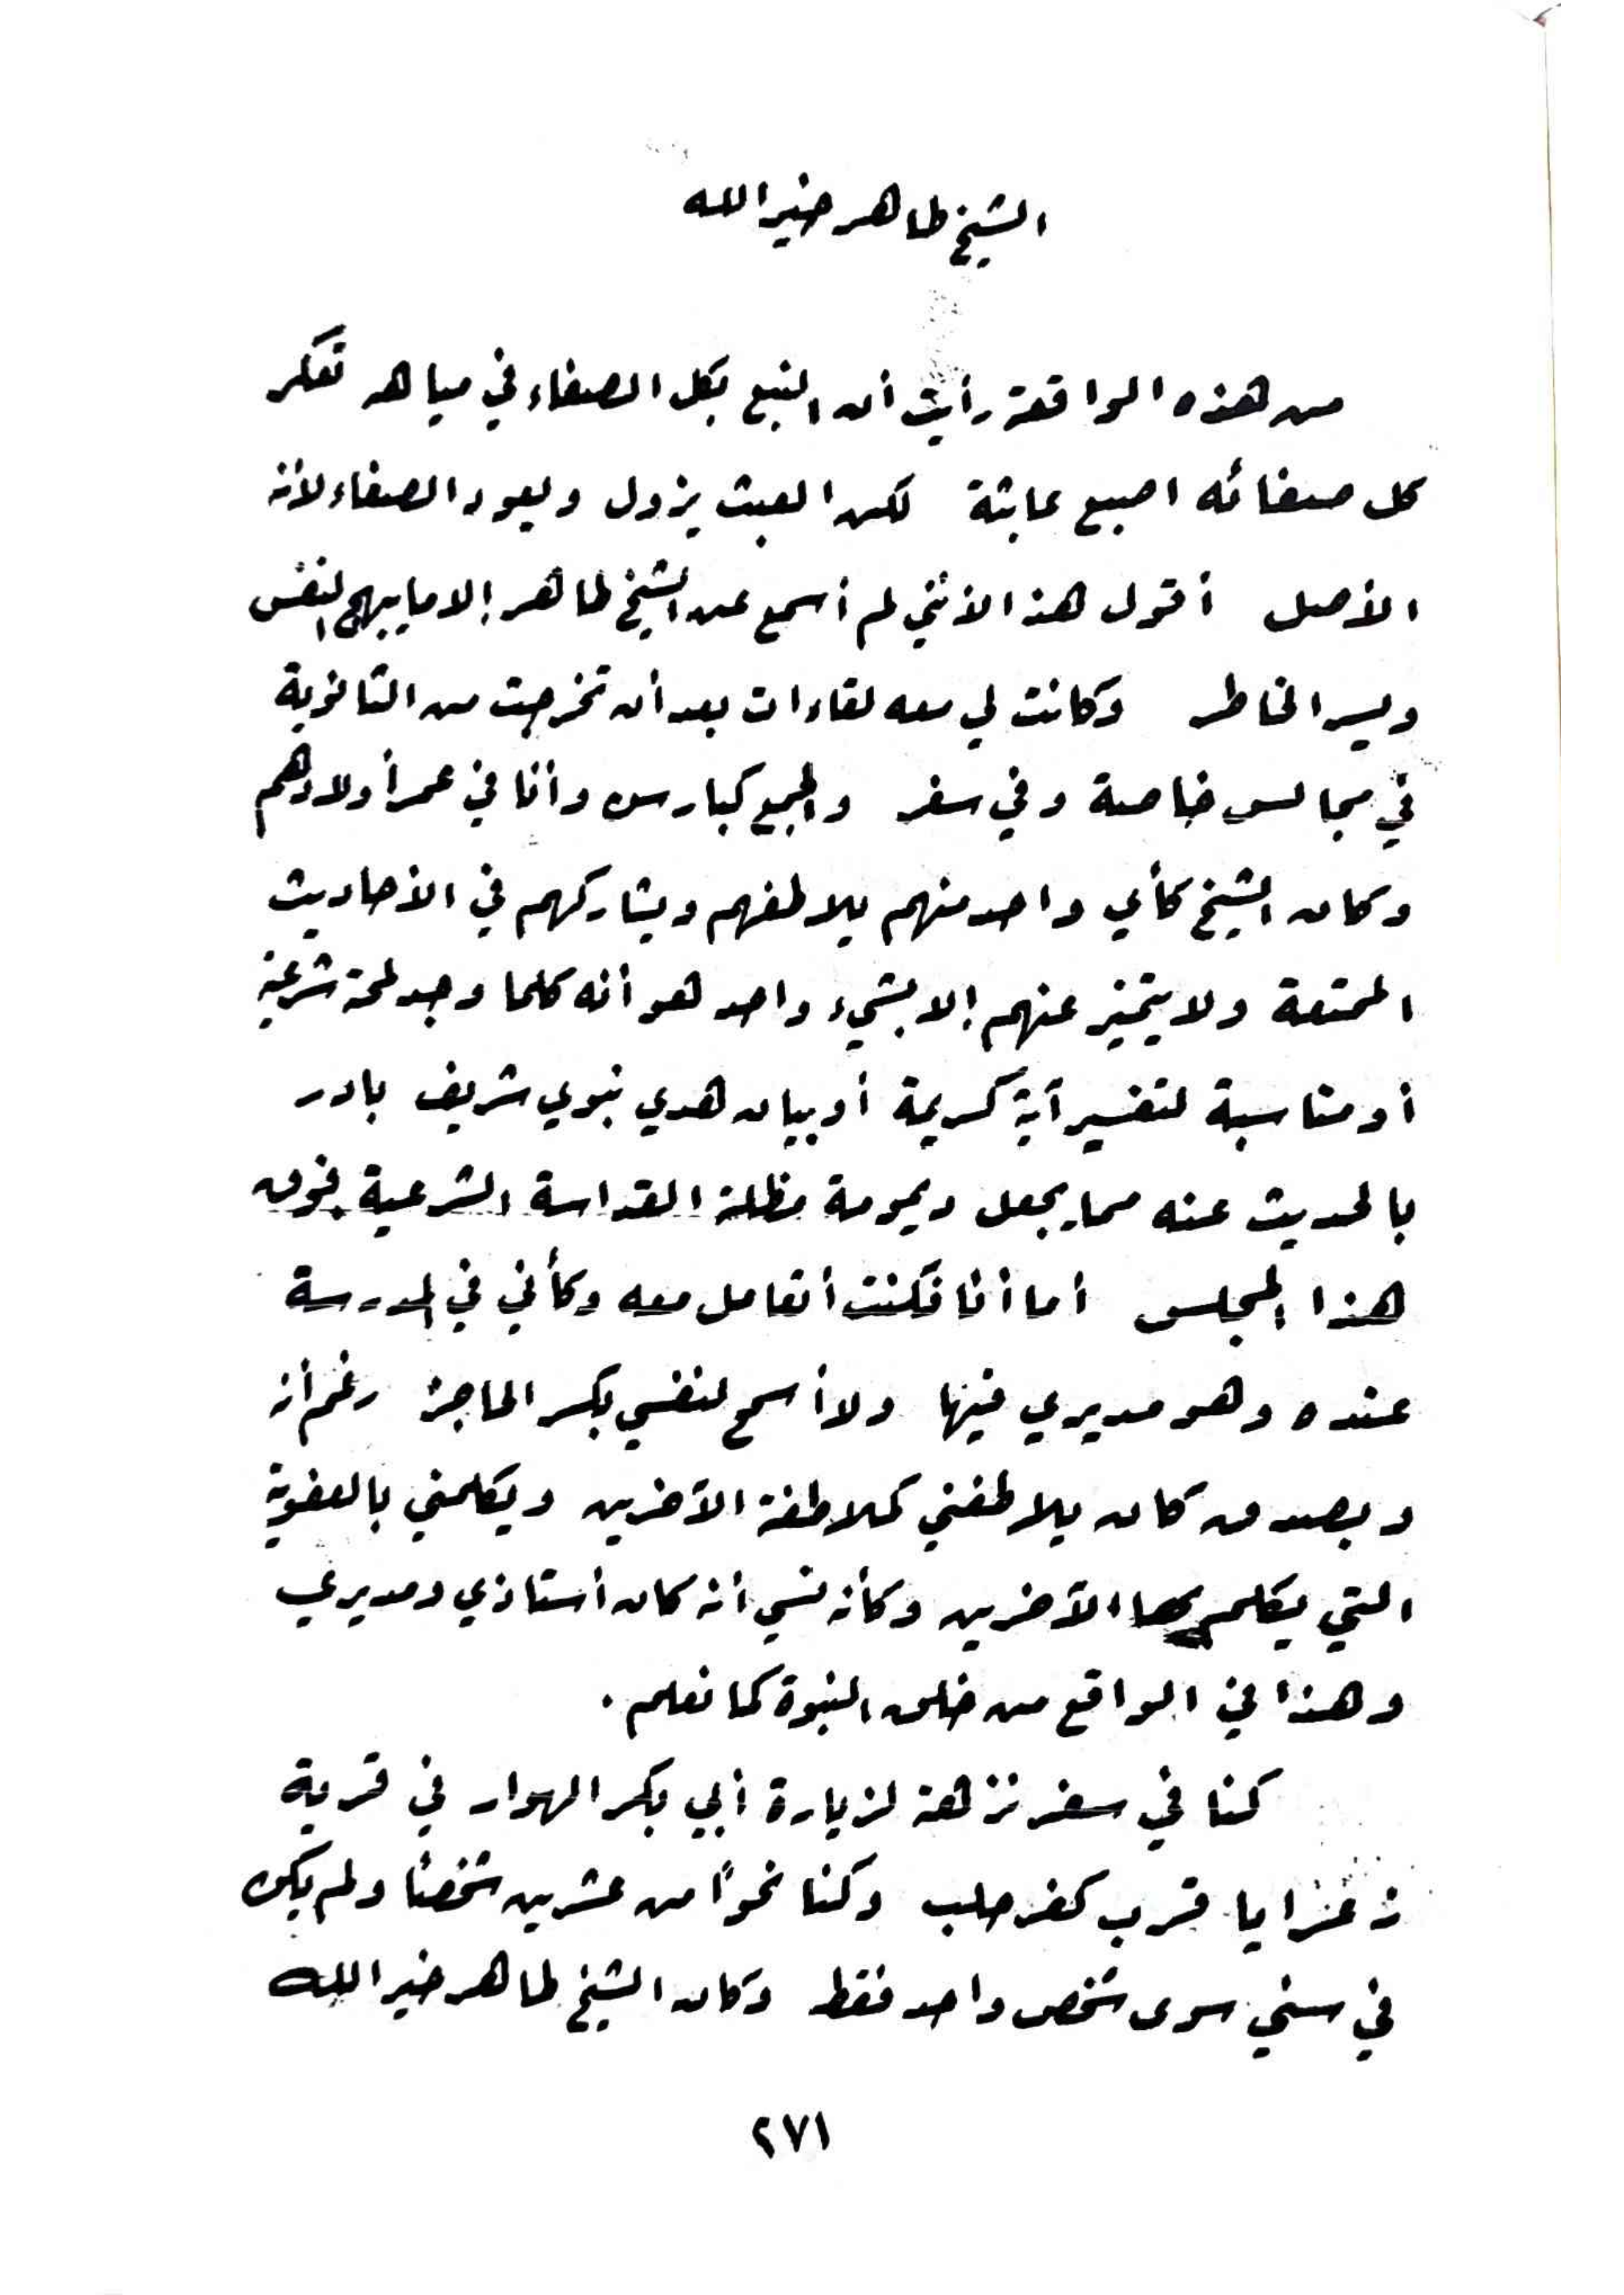 الشيخ طاهر خير الله
من هذه الواقعة رأيت أن النبع بكل الصفاء في مياهه تعكر
كل صفائه اصبع عابثة لكن العبث يزول ويعود الصفاء لأنه
الأصل أقول هذا لأنني لم أسمع عن الشيخ طاهر إلا ما يبهج النفس
ويسر الخاطر وكانت لي معه لقاءات بعد أن تخرجت من الثانوية
في مجالس خاصة وفي سفر والجمع كبار سن وأنا في عمر أولادهم
وكان الشيخ كأي واحد منهم يلاطفهم ويشاركهم في الأحاديث
الممتعة ولا يتميز عنهم إلا بشيء واحد هو أنه كلما وجد لمحة شرعية
أو مناسبة لتفسير آية كريمة أو بيان هدي نبوي شريف بادر
بالحديث عنه مما يجعل ديمومة مظلة القداسة الشرعية فوق
هذا المجلس أما أنا فكنت أتعامل معه وكأني في المدرسة
عنده وهو مديري فيها ولا أسمح لنفسي بكسر الحاجز رغم أنه
وبصدق كان يلاطفني كملاطفة الآخرين ويكلمني بالعفوية
التي يكلم بها الآخرين وكأنه نسي أنه كان أستاذي ومديري
وهذا في الواقع من خلق النبوة كما نعلم .
كنا في سفر نزهة لزيارة أبي بكر الهوار في قرية
زعزايا قرب كفر حلب وكنا نحواً من عشرين شخصاً ولم يكن
في سني سوى شخص واحد فقط وكان الشيخ طاهر خير الله
٢٧١